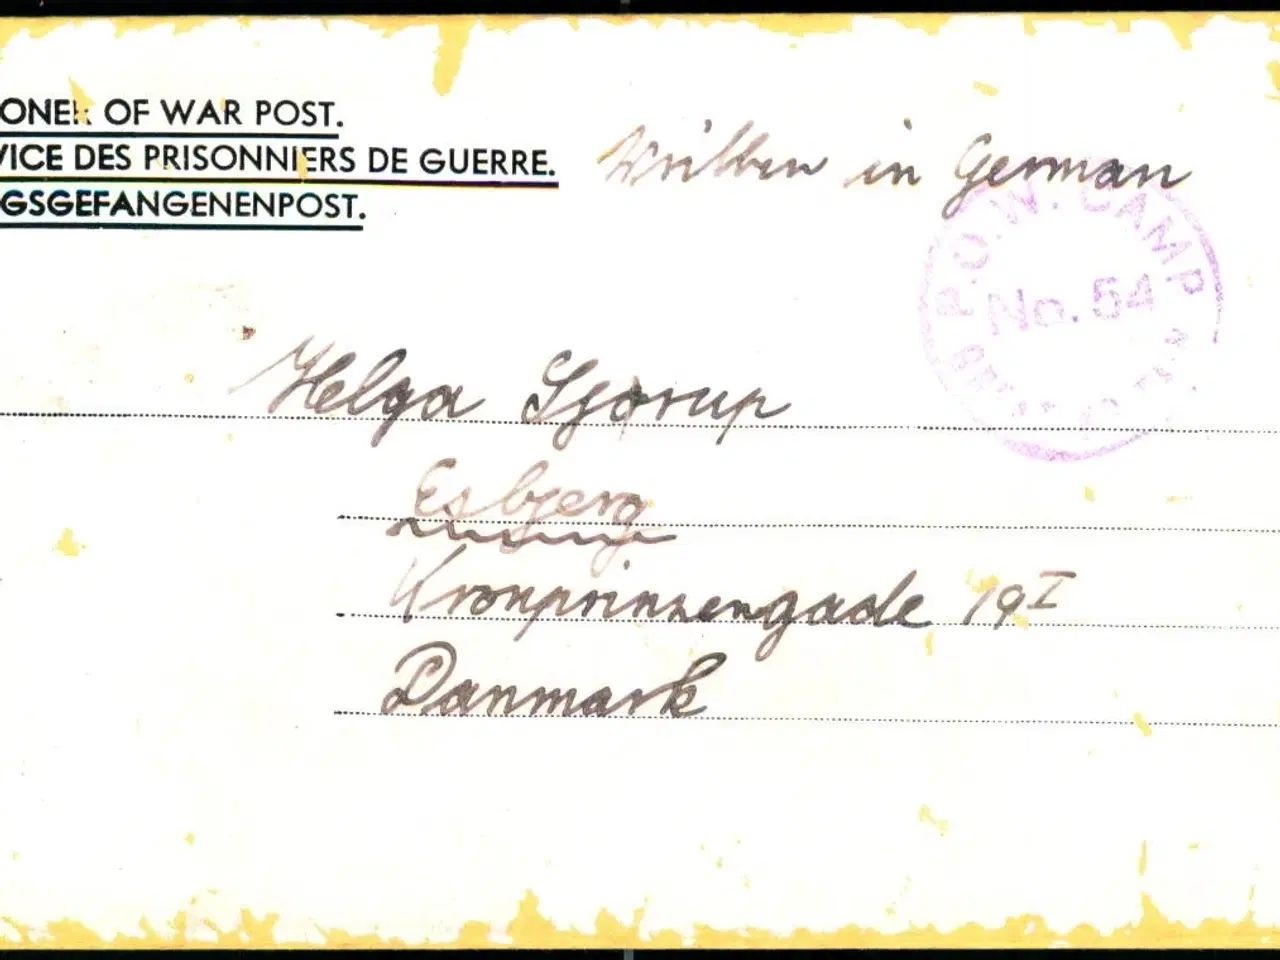 ONER OF WAR POST.
VICE DES PRISONNIERS DE GUERRE.
GSGEFANGENENPOST.
Written in German
P.O.W. CAMP
No. 54
Helga
Esbjerg
Kronprinzengade 19 I
Danmark